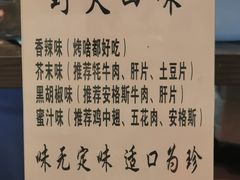 香辣味（烤啥都好吃）
芥末味（推荐牦牛肉、肝片、土豆片）
黑胡椒味（推荐安格斯牛肉、肝片）
蜜汁味（推荐鸡中翅、五花肉、安格斯）
味无定味 适口为珍